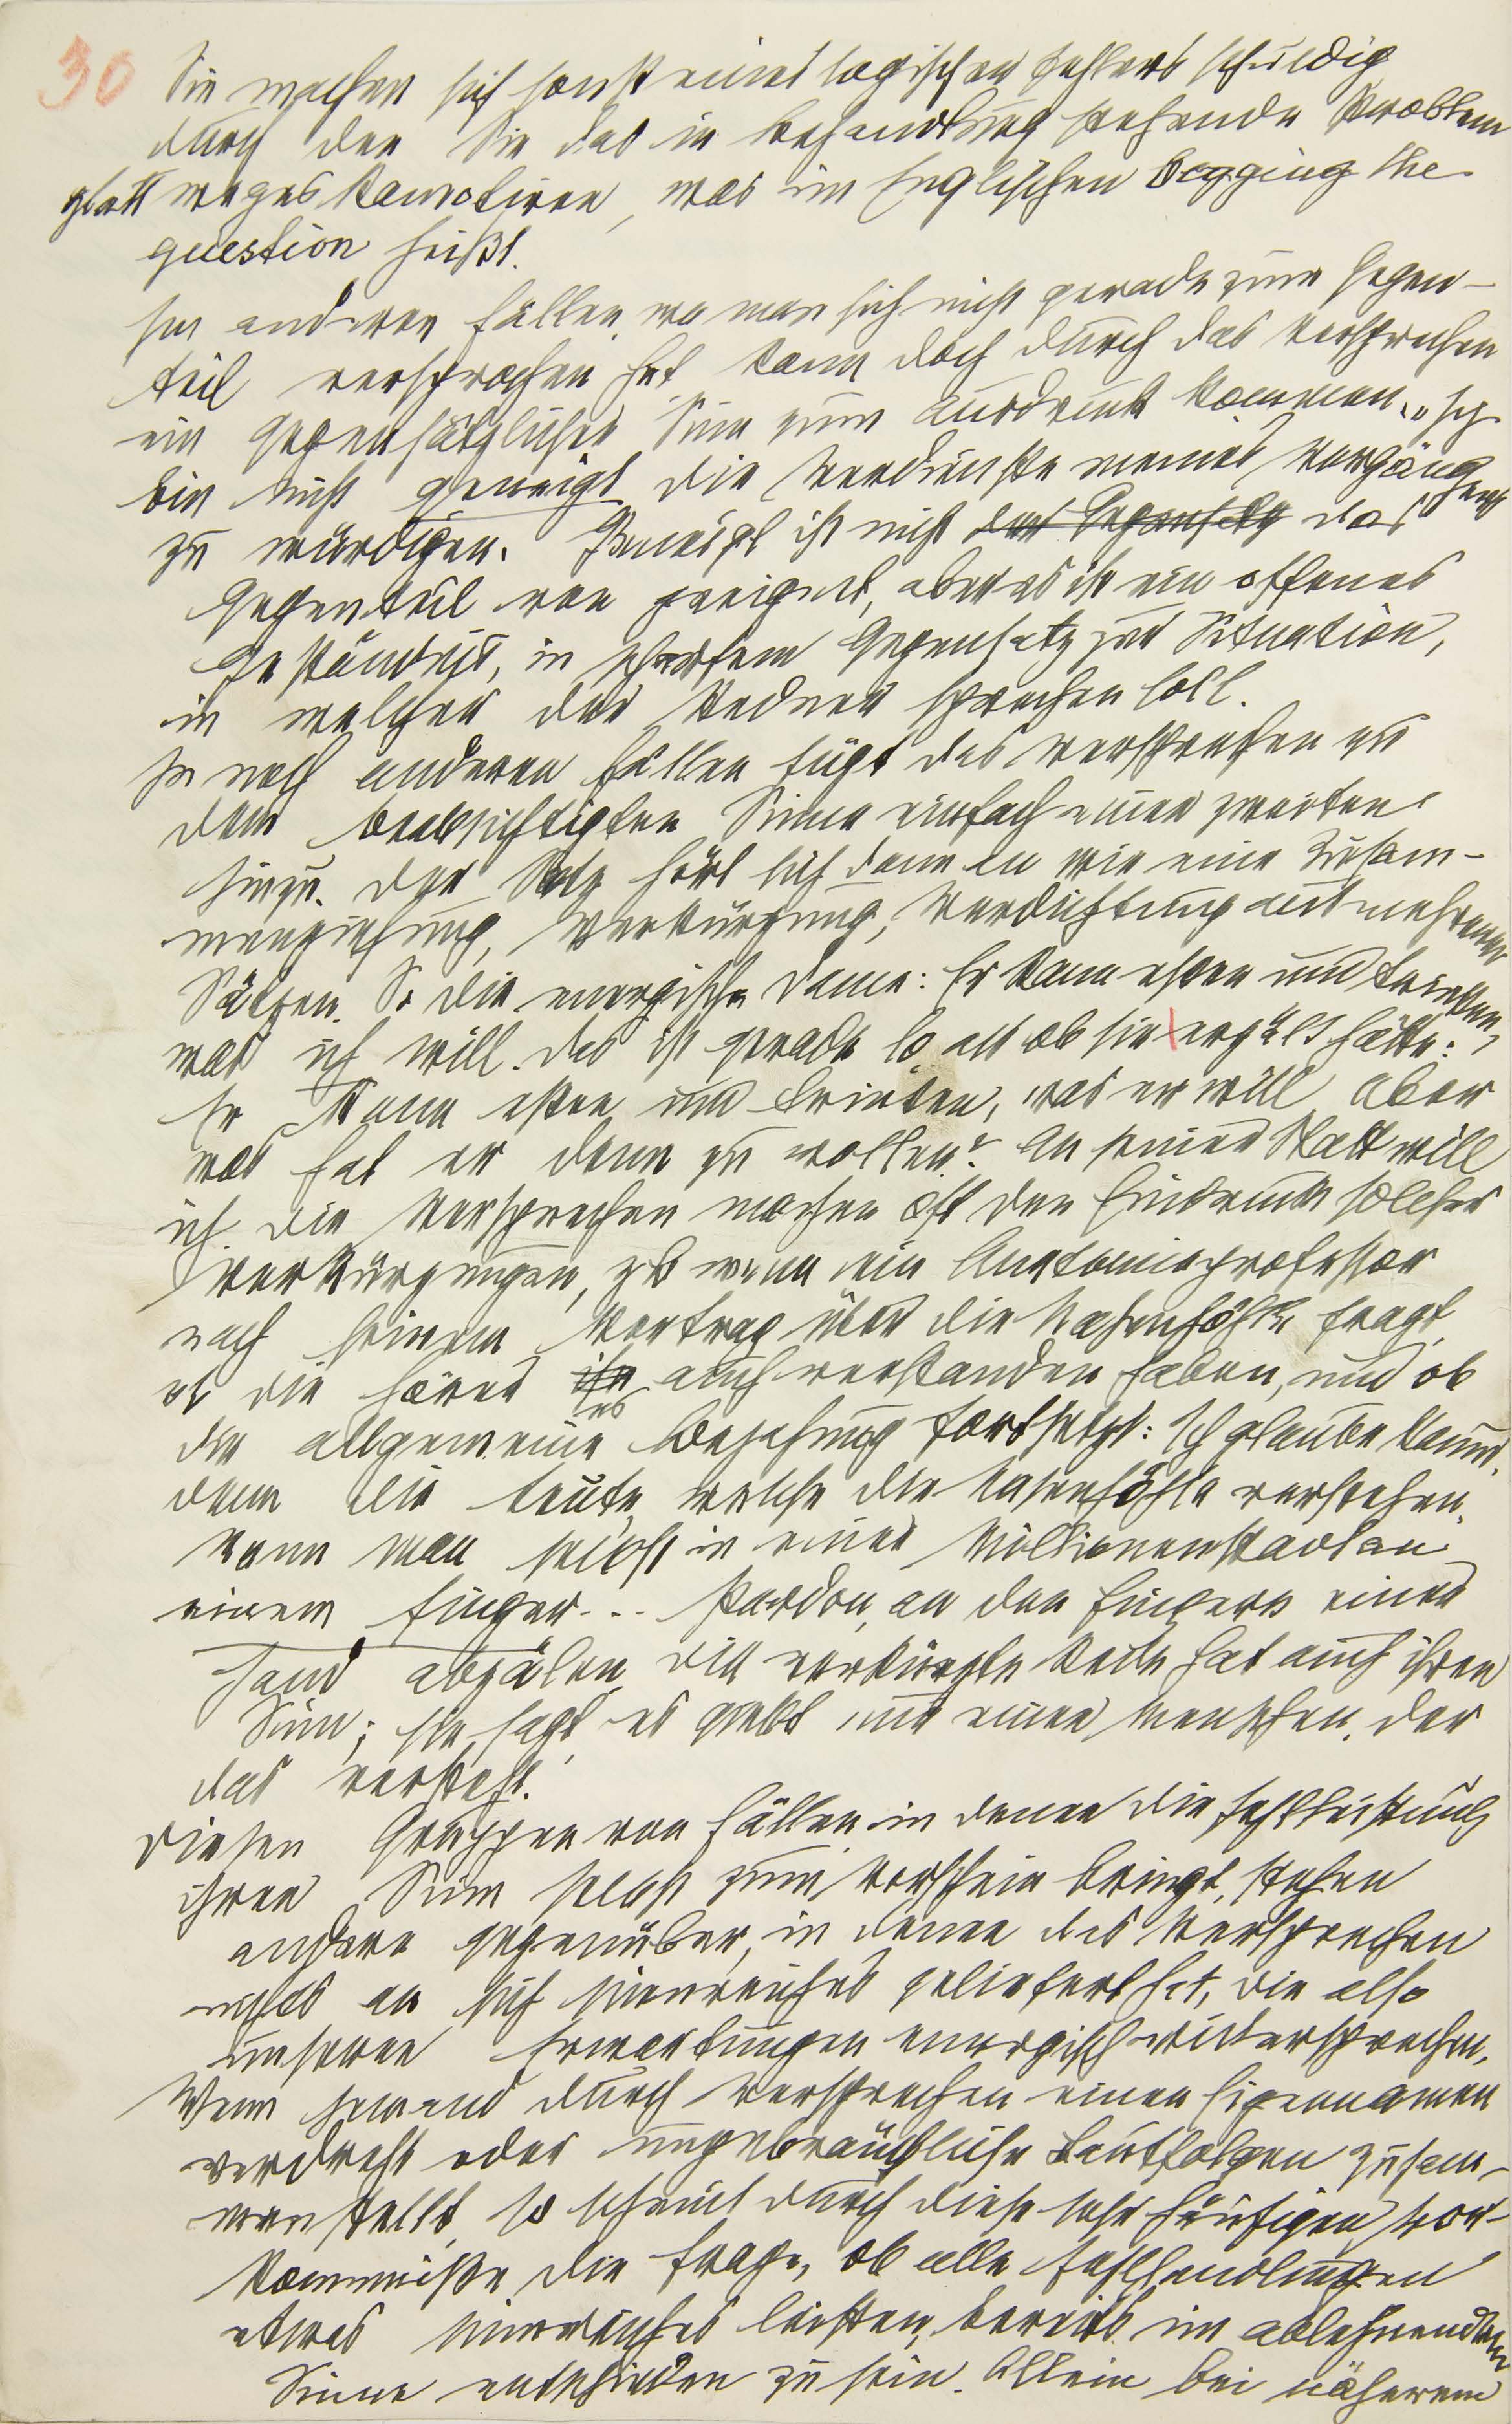 30
Sie machen sich sonst eines logischen Fehlers schuldig
durch den Sie das in Behandlung stehende Problem
glatt wegeskamotiren, was im Englischen begging the
question heißt.
In anderen Fällen, wo man sich nicht gerade zum Gegen-
teil versprochen hat kann doch durch das Versprechen
ein gegensätzlicher Sinn zum Ausdruck kommen. „Ich
bin nicht geneigt die Verdienste meines Vorgängers
zu würdigen. Geneigt ist nicht der Gegensatz das
Gegenteil von geeignet, aber es ist ein offenes
Geständnis, in scharfem Gegensatz zur Situation,
in welcher der Redner sprechen soll.
In noch anderen Fällen fügt das Versprechen zu
dem beabsichtigten Sinne einfach einen zweiten
hinzu. Der Satz hört sich dann an wie eine Zusam-
menziehung, Verkürzung, Verdichtung aus mehreren
Sätzen. So die energische Dame: Er kann essen und trinken,
was ich will. Das ist gerade so als ob sie erzält hätte:
Er kann essen und trinken, was er will aber
was hat er denn zu wollen? An seiner Statt will
ich. Die Versprechen machen oft den Eindruck solcher
Verkürzungen, zB wenn ein Anatomieprofessor
nach seinem Vortrag über die Nasenhöhle fragt,
ob die Hörer sie auch verstanden haben, und ob
der allgemeine Bejahung fortsetzt: Ich glaube kaum,
denn die Leute, welche die Nasenhöhle verstehen,
kann man selbst in einer Millionenstadt an
einem Finger... Pardon, an den Fingern einer
Hand abzälen. Die verkürzte Rede hat auch ihren
Sinn; sie sagt, es giebt nur einen Menschen, der
das versteht.
Diesen Gruppen von Fällen in denen die Fehlleistung
ihren Sinn selbst zum Vorschein bringt, stehen
andere gegenüber, in denen das Versprechen
nichts an sich Sinnreiches geliefert hat, die also
unseren Erwartungen energisch widersprechen.
Wenn jemand durch Versprechen einen Eigennamen
verdreht oder ungebräuchliche Lautfolgen zusam-
menstellt, so scheint durch diese sehr häufigen Vor-
kommniße die Frage, ob alle Fehlhandlungen
etwas Sinnreiches leisten, bereits im ablehnenden
Sinne entschieden zu sein. Allein bei näherem